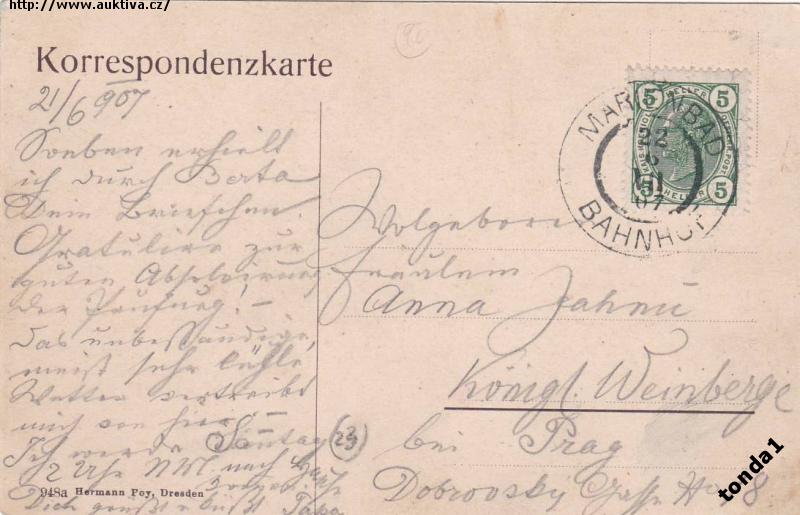 http://www.auktiva.cz/
Korrespondenzkarte
21/6 907
Soeben erhielt
ich durch Berta
Dein Briefchen.
Gratuliere zur
guten Absolvirung
der Prüfung! –
Das unbeständige,
meist sehr kühle
Wetter vertreibt
mich von hier. –
Ich werde Sonntag
2 Uhr NM. nach
Dich grüßt u. küßt Papa
948a Hermann Poy, Dresden
5 HELLER 5
5 HELLER 5
MARIENBAD
22
07
BAHNHOF
Wolgeboren
Fräulein
Anna Jahnu
Königl. Weinberge
bei Prag
Dobrovsky Gasse No 8
23
tonda1